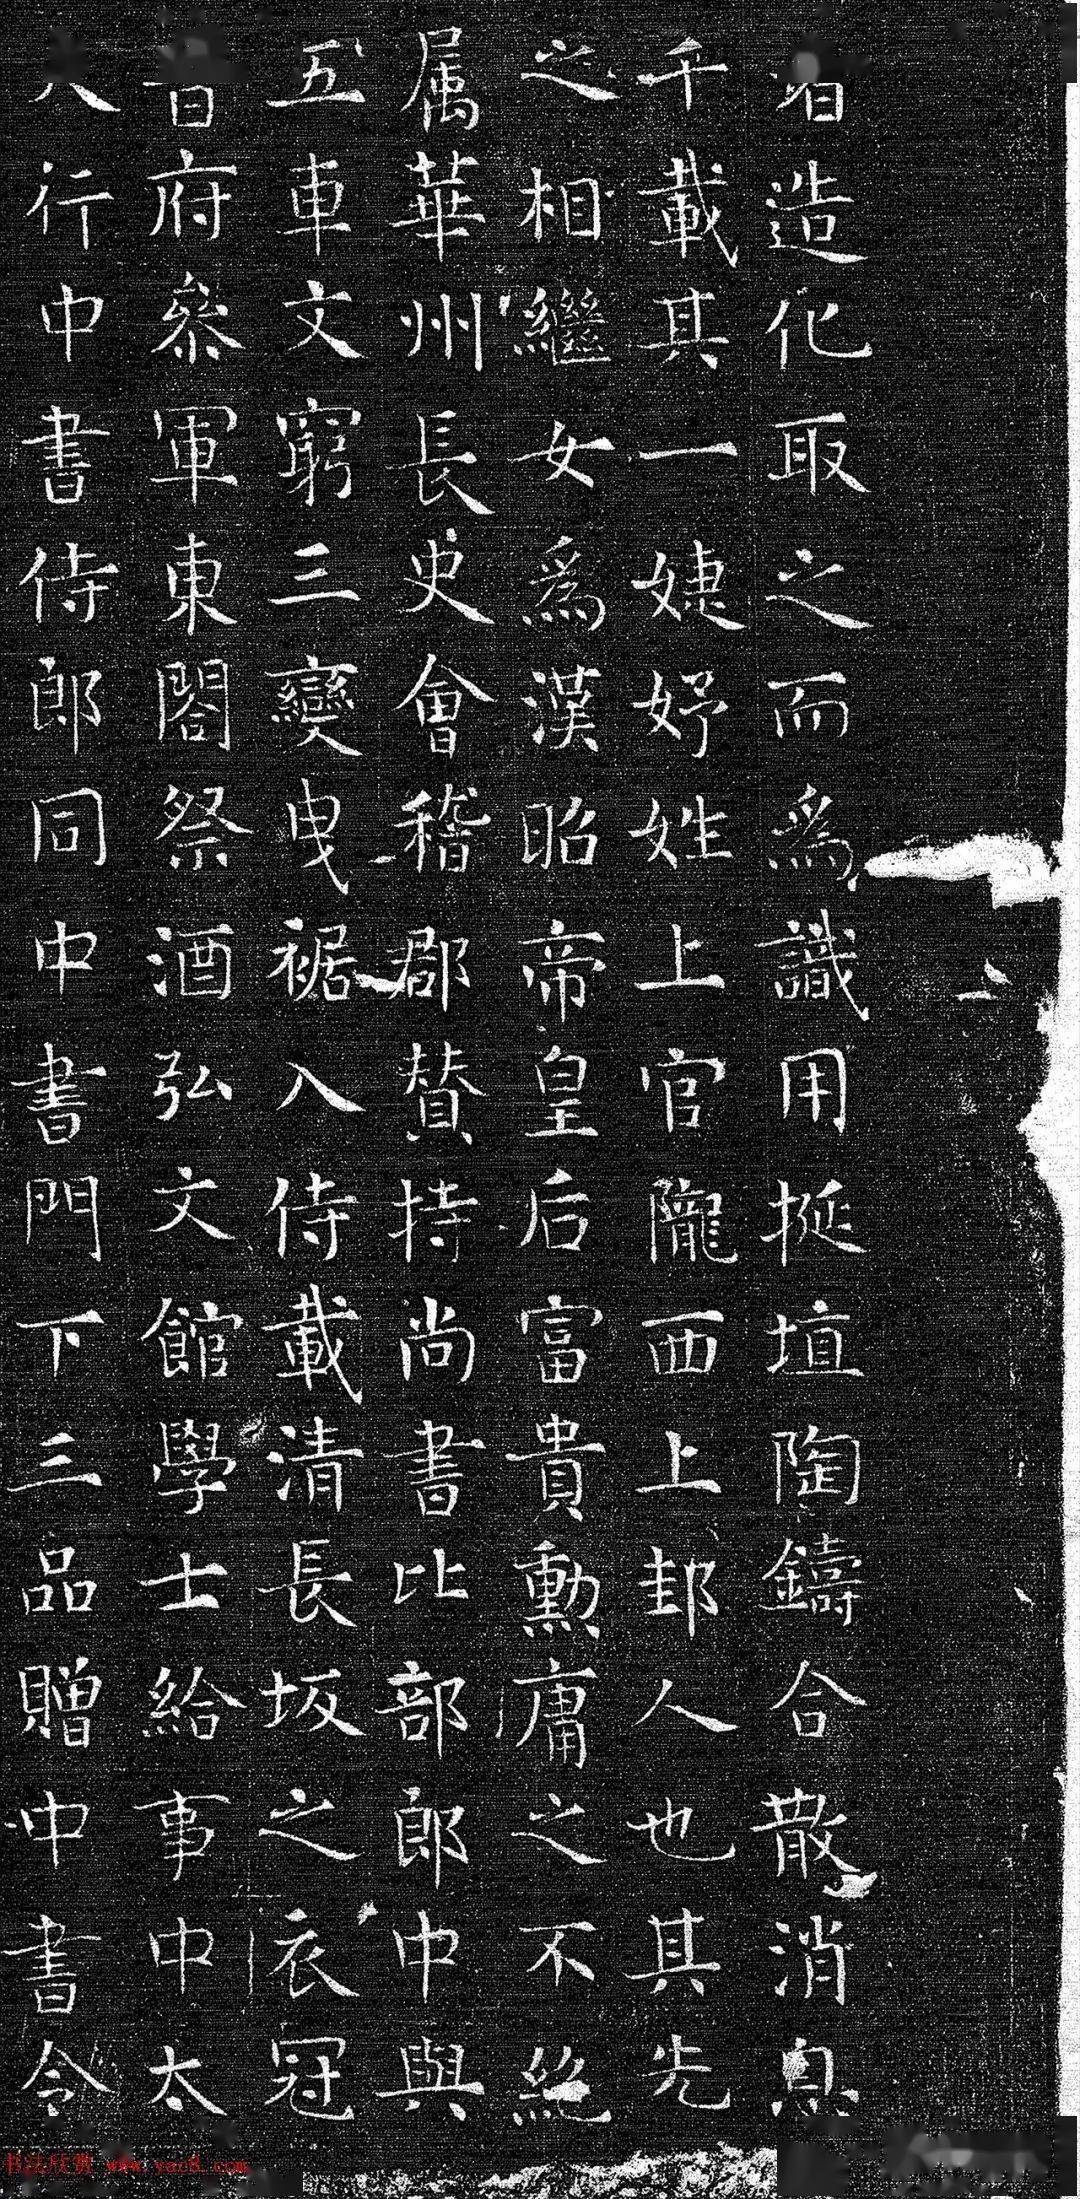 造化取之而爲識用挻埴陶鑄合散消息
千載其一婕妤姓上官隴西上邽人也其先
之相繼女爲漢昭帝皇后富貴勳庸之不絕
属華州長史會稽郡賛持尚書比部郎中與
五車文窮三變曳裾入侍載清長坂之衣冠
府叅軍東閤祭酒弘文館學士給事中太
行中書侍郎同中書門下三品贈中書令
书法欣赏 www.yac8.com